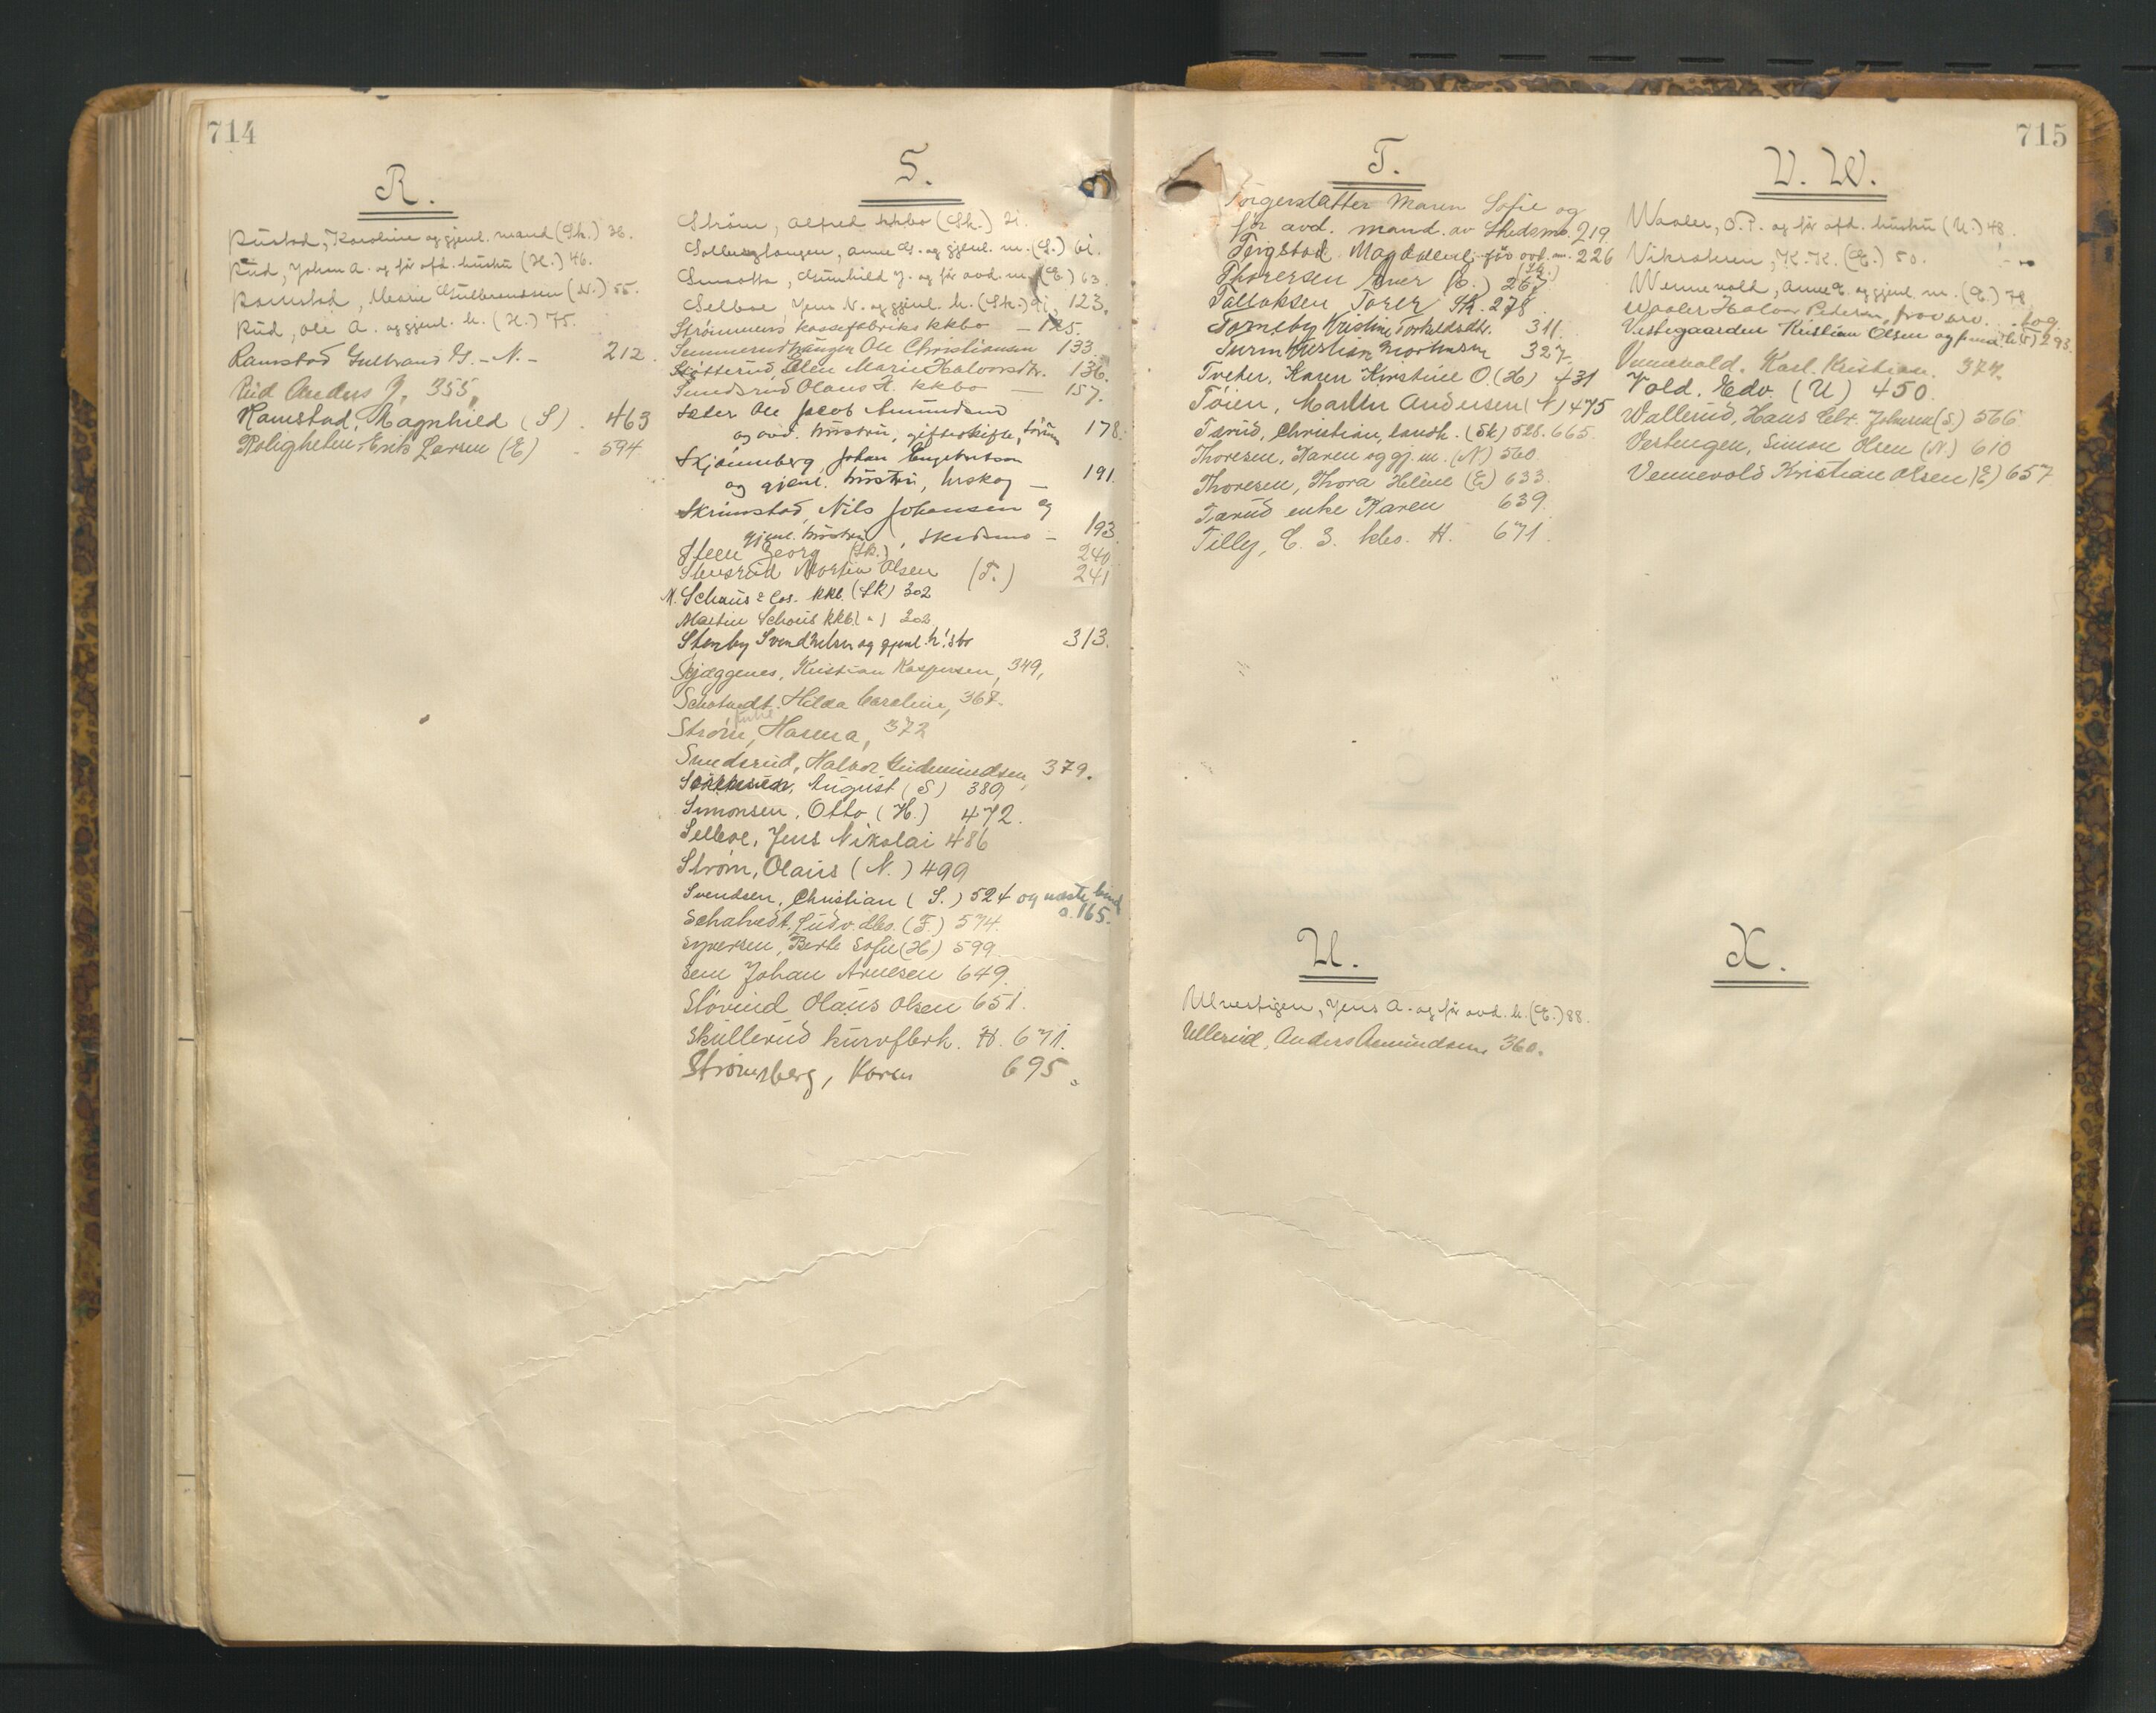 714
R.
Rustad, Karoline og gjenl. mand (Sk.) 36.
Rud, Johan A. og før afd. hustru (H.) 46.
Ramstad, Marie Gulbrandsen (N.) 55.
Rud, Ole A. og gjenl. h. (H.) 75.
Ramstad Gulbrand G. - N. - 212.
Rud Anders J. 355,
Ramstad, Magnhild (S) . 463
Roligheten Erik Larsen (E) . 594
S.
Strøm, Alfred kkbo (Sk.) 21.
Solbergfangen, Anne G. og gjenl. m. (S.) 61.
Smaatta, Gunhild J. og før avd. m. (E.) 63.
Selboe, Jens N. og gjenl. h. (Sk.) 91, 123.
Strømmens kassefabriks kkbo — 125.
Ole Christiansen 133
Slotterud Ellen Marie Halvorsdtr. 136.
Sundsrud Olaus H. kkbo — 157.
Sæter Ole Jacob Amundsen
og avd. hustru, gifteskifte, 178.
Skjønneberg, Johan Engebretsen
og gjenl. hustru, Urskog — 191.
Skrimstad, Nils Johansen og
gjenl. hustru, Skedsmo — 193.
Steen Georg (Sk.) 240
Stensrud Morten Olsen (F.) 241
M. Schous & Cos. kkb. (SK) 302
Martin Schous kkb ( " ) 302
Stenby Svend Nelsen og gjenl. h's bo 313.
Skjæggenes, Kristian Kaspersen, 349,
Schatvedt, Hilda Caroline, 367.
Strøm, enke Hanna, 372
Sundsrud, Halvor Gudmundsen, 379.
August (S) 389
Simonsen, Otto (H.) 472.
Selboe, Jens Nikolai 486
Strøm, Olaus (N.) 499
Svendsen, Christian (S.) 524 og næste bind
s. 165.
Schatvedt, Ludv. dbo. (F.) 574.
Syversen, Berte Sofie (H) 599
Sem Johan Arnesen 649.
Støvind Olaus Olsen 651.
Skullerud kurvflerk. H. 671.
Strømsberg, Karen 695.
715
T.
Torgersdatter Maren Sofie og
før avd. mand. av Skedsmo 219.
Teigstad. Magdalena før avd. m. 226
(Sk.)
Thoresen Iver (B.) 267
Tollaksen Torer SK. 278.
Torneby Kristine Torkeldsdtr. 311.
Kristian 327
Tveter, Karen Kirstine O. (H) 431
Tøien, Martin Andersen (N) 475
Tærud, Christian, landh. (Sk) 528. 665.
Thoresen, Karen og gj. m. (N) 560.
Thoresen, Thora Heline (E) 633.
Tærud enke Karen 639.
Tilly, C. S. kbo. H. 671.
V. W.
Waaler, O. P. og før afd. hustru (U.) 48.
K. K. (E.) 50.
Wennevold, Anne E. og gjenl. m. (E.) 78.
Waaler Halvor Pedersen,
Vestegaarden Kristian Olsen og 293.
Vennevold. Karl. Kristian. 374.
Vold. Edv. (U) 450.
Wallerud, Hans Edv. Johansen (S.) 566
Vestengen, Simon Olsen (N.) 610
Vennevold Kristian Olsen (E) 657
U.
Ulvestigen, Jens A. og før avd. h. (E.) 88.
Ullerud, Anders Amundsen 360.
X.